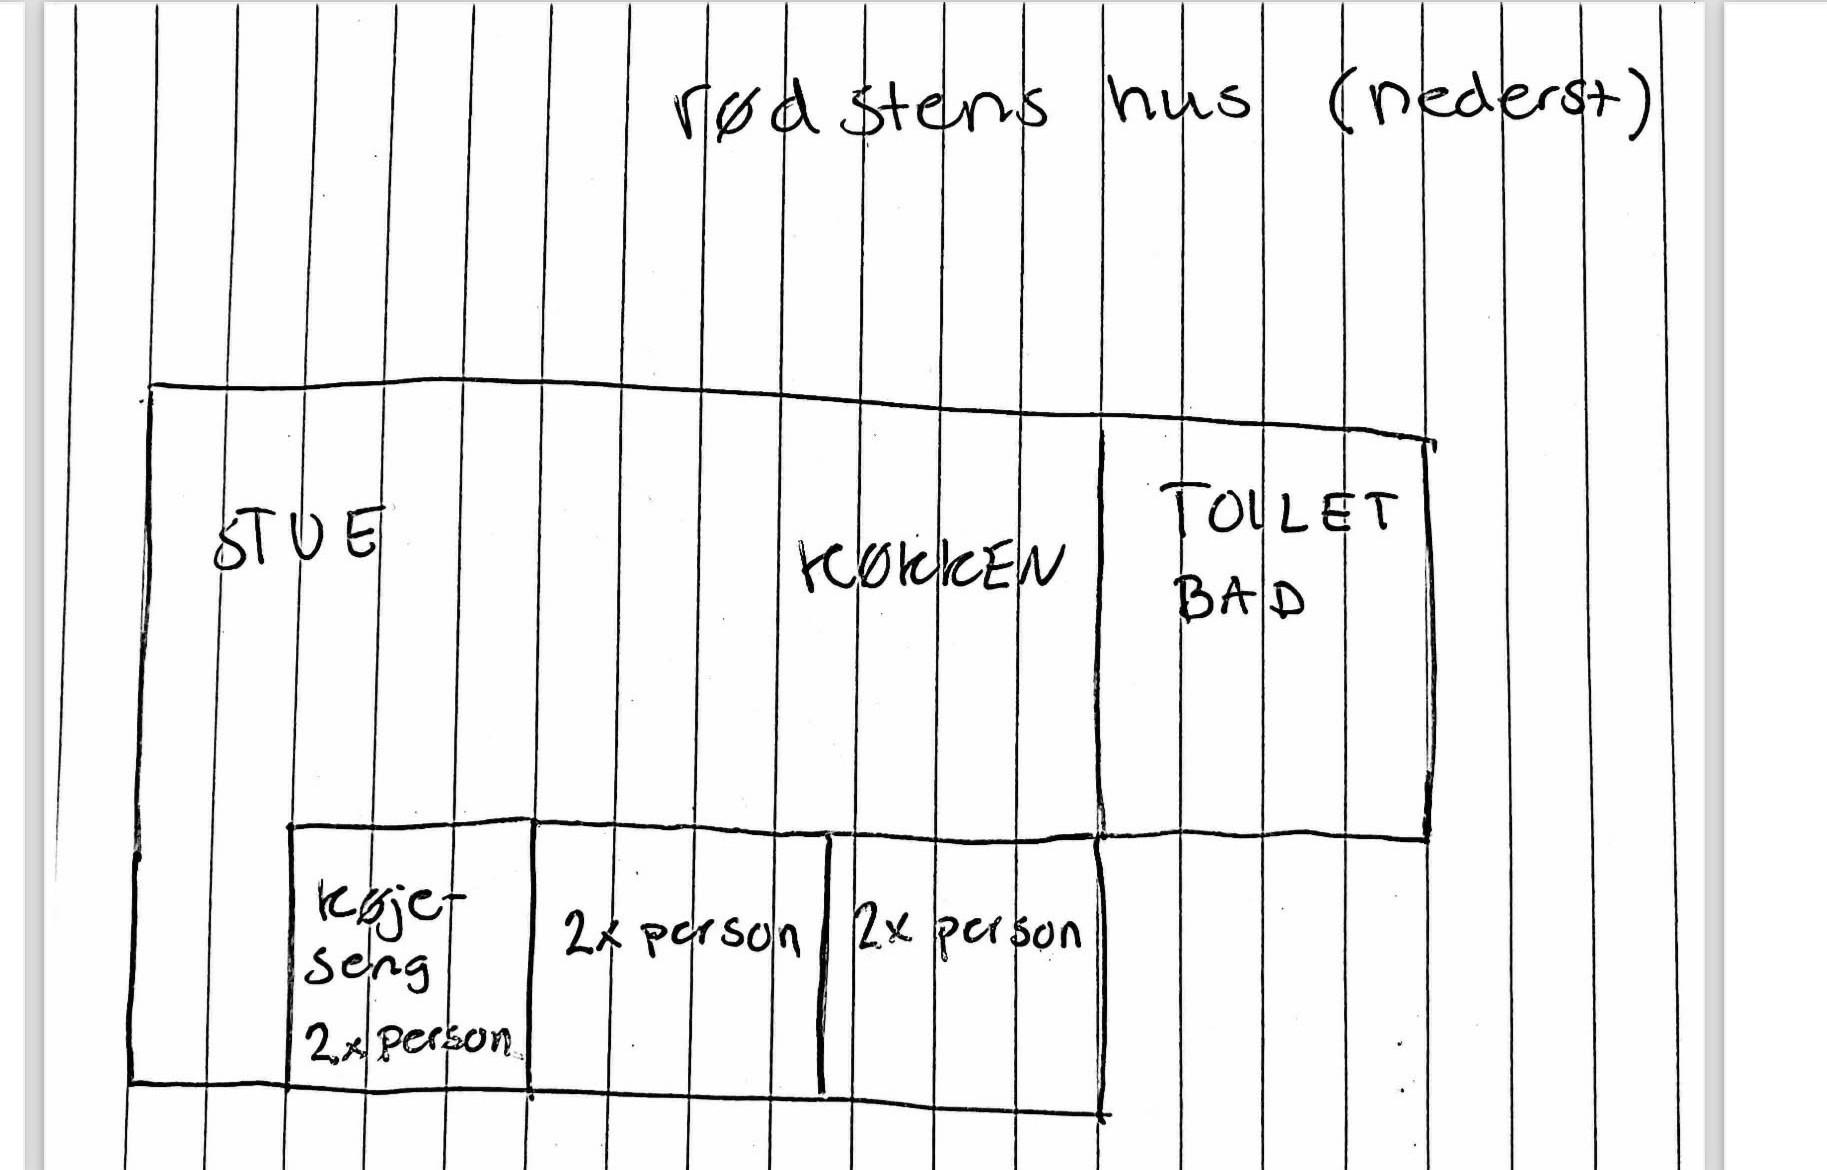 rødstens hus (nederst)
STUE
KØKKEN
TOILET
BAD
Køje-
seng
2x person
2x person
2x person